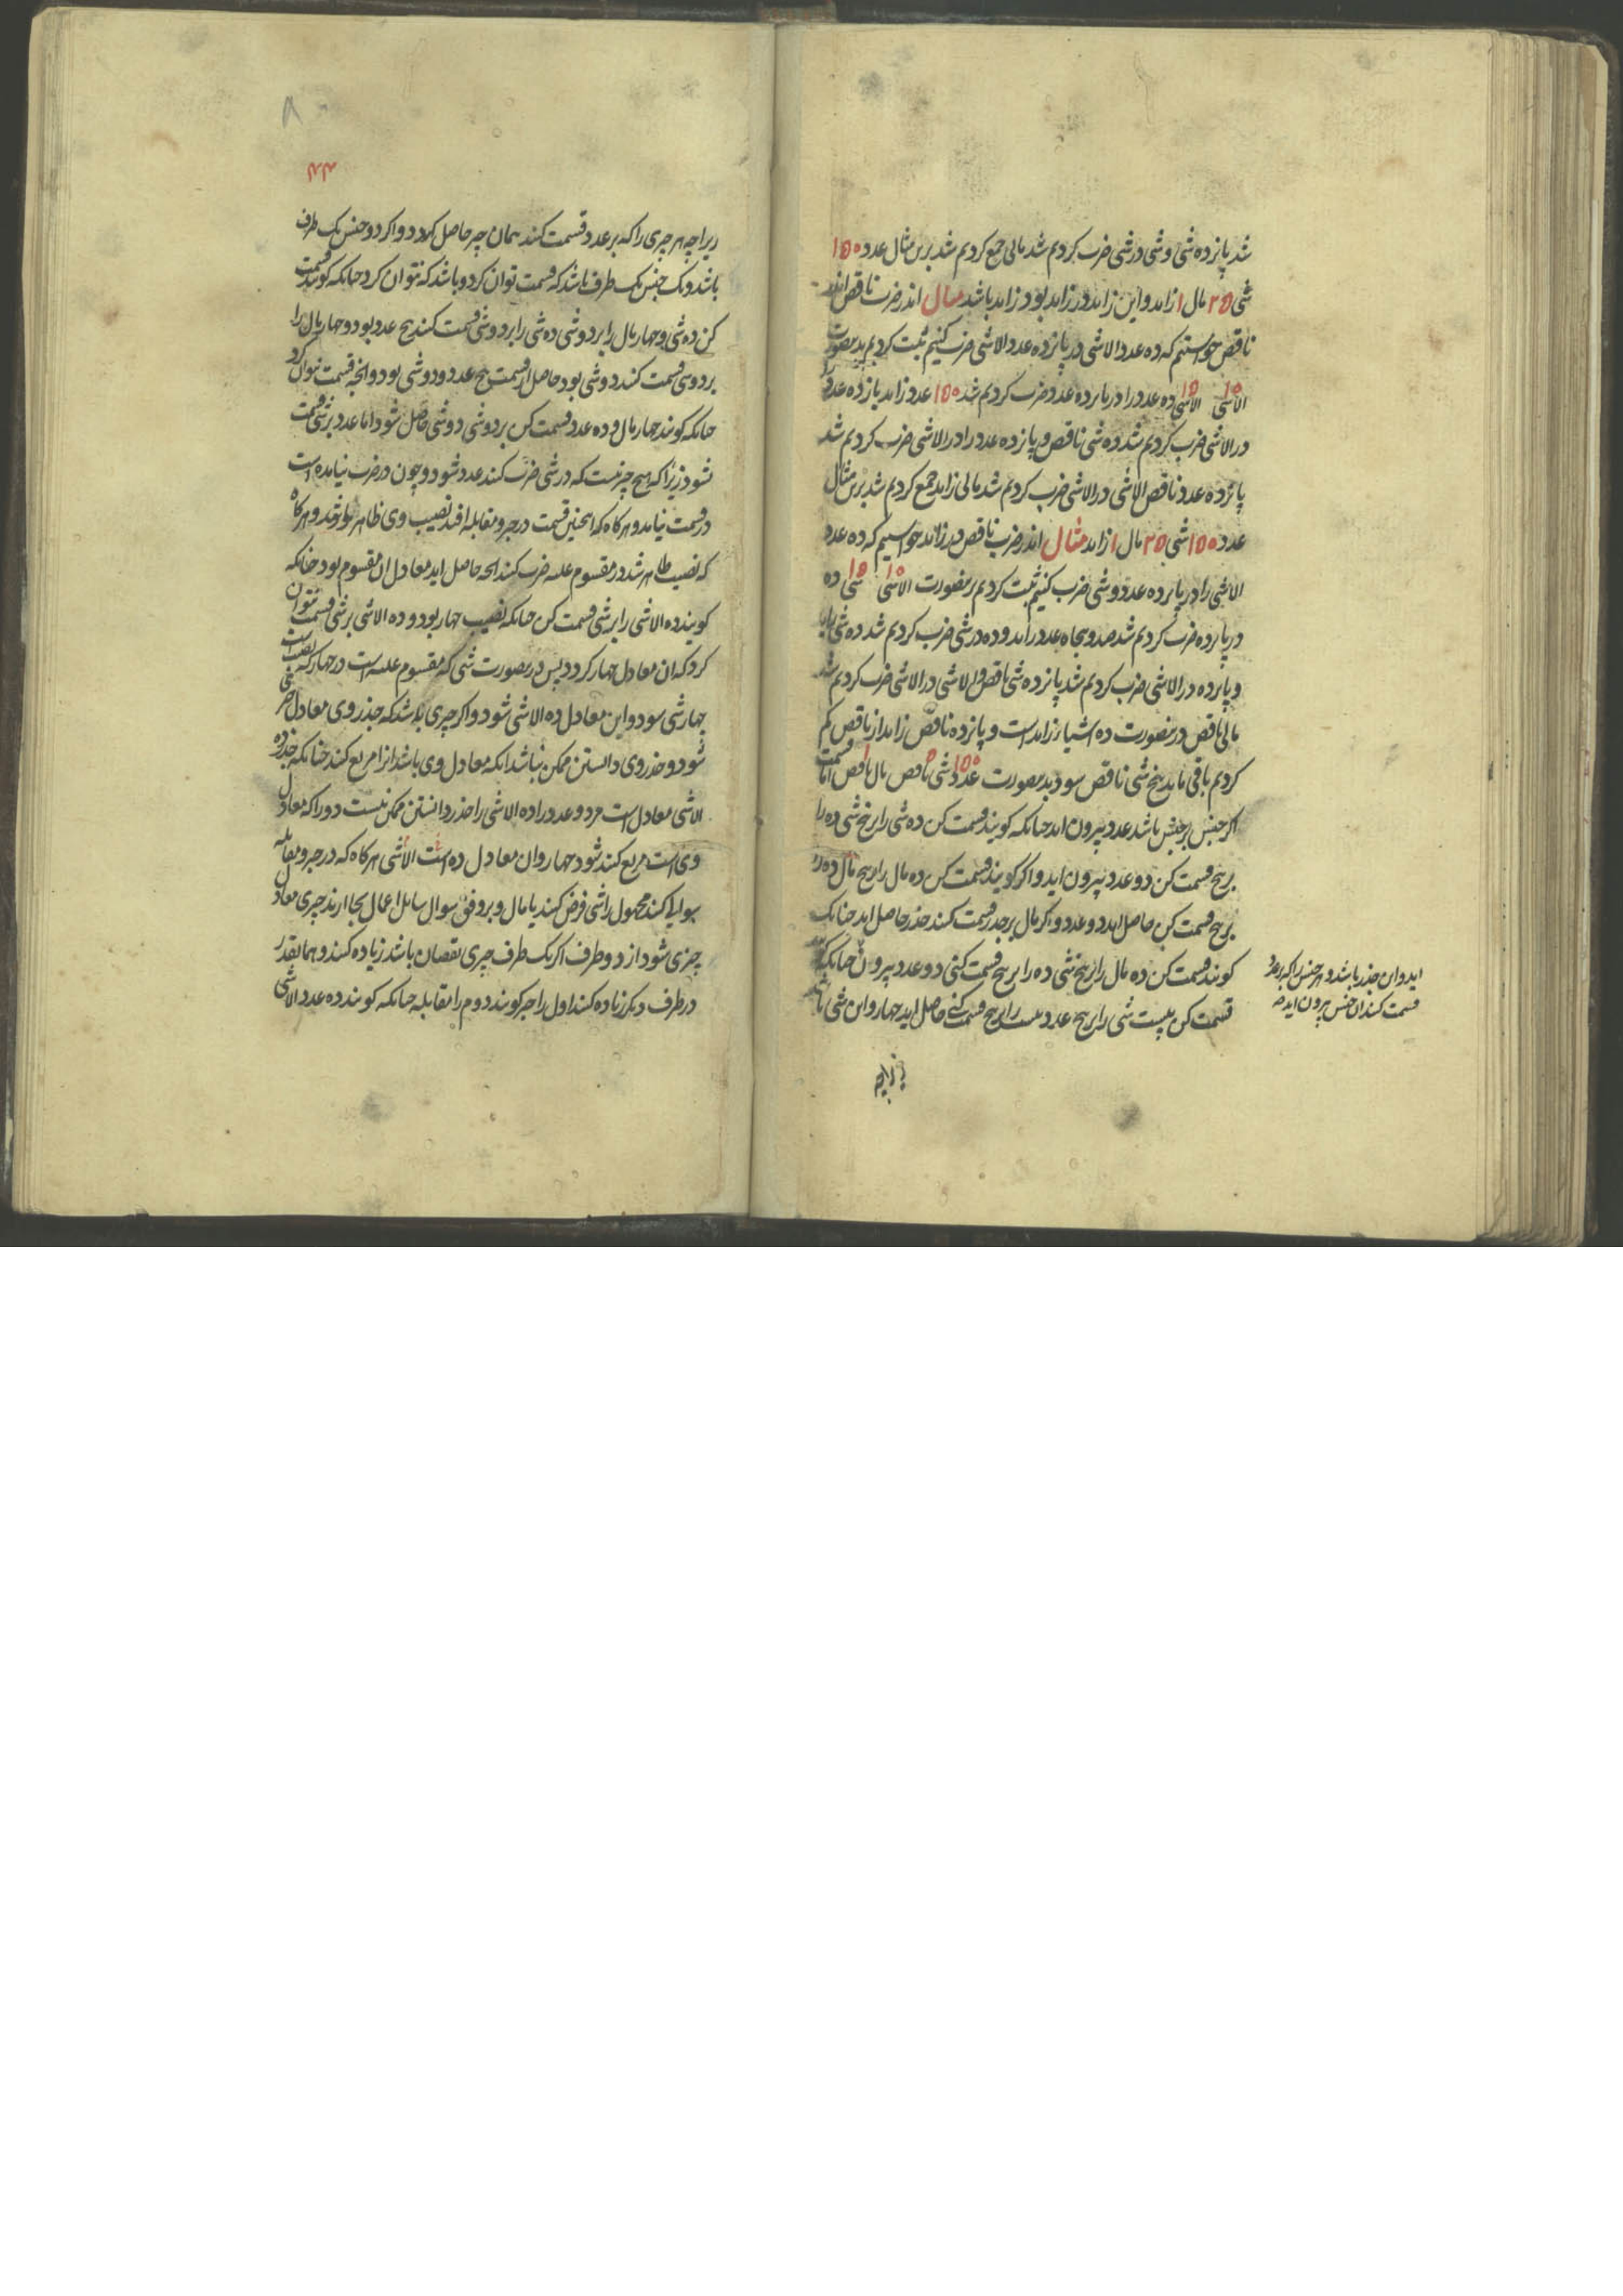 شد پانزده شی و شی در شی ضرب کردیم شد مالی جمع کردیم شد برین مثال عدد ۱۵۰
شی ۲۵ مال ۱ زاید و این زاید در زاید بود زاید باشد مثال اندر ضرب ناقص اندر
ناقص خواستیم که ده عدد الاشی در پانزده عدد الاشی ضرب کنیم ثبت کردیم بدین صورت
۱۰ الاشی ۱۵ الاشی ده عدد را در پانزده عدد ضرب کردیم شد ۱۵۰ عدد زاید باز ده عدد را
در الاشی ضرب کردیم شد ده شی ناقص و پانزده عدد را در الاشی ضرب کردیم شد
پانزده عدد ناقص الاشی در الاشی ضرب کردیم شد مالی زاید جمع کردیم شد برین مثال
عدد ۱۵۰ شی ۲۵ مال ۱ زاید مثال اندر ضرب ناقص در زاید خواستیم که ده عدد
الاشی را در پانزده عدد و شی ضرب کنیم ثبت کردیم برینصورت ۱۰ الاشی ۱۵ شی ده
در پانزده ضرب کردیم شد صد و پنجاه عدد زاید و ده در شی ضرب کردیم شد ده شی زاید
و پانزده در الاشی ضرب کردیم شد پانزده شی ناقص و الاشی در الاشی ضرب کردیم شد
مالی ناقص درینصورت ده اشیا زاید است و پانزده ناقص زاید از ناقص کم
کردیم باقی ماند پنج شی ناقص سود بدینصورت عدد ۱۵۰ شی ۵ ناقص مال ۱ ناقص اما قسمت
اگر جنس بر جنس باشد عدد بیرون اید چنانکه کویند قسمت کن ده شی را بر پنج شی ده را
بر پنج قسمت کن دو عدد بیرون اید و اکر کویند قسمت کن ده مال را بر پنج مال ده را
بر پنج قسمت کن حاصل اید دو عدد و اکر مال بر جذر قسمت کنند جذر حاصل اید چنانک
کویند قسمت کن ده مال را بر پنج شی ده را بر پنج قسمت کنی دو عدد بیرون چنانکه کویند
قسمت کن بیست شی را بر پنج عدد بیست را بر پنج قسمت کنی حاصل اید چهار و این شی باشد
اید و این جذر باشد و هر جنس را که بعدد
قسمت کنند ان جنس بیرون اید
زیراچه
۴۴
زیراچه هر چیزی را که بر عدد قسمت کنند همان چیز حاصل کردد و اکر دو جنس یک طرف
باشد و یک جنس یک طرف باشد که قسمت توان کرد و باشد که نتوان کرد چنانکه کویند قسمت
کن ده شی و چهار مال را بر دو شی ده شی را بر دو شی قسمت کنند پنج عدد بود و چهار مال را
بر دو شی قسمت کنند دو شی بود حاصل از قسمت پنج عدد و دو شی بود و انچه قسمت نتوان کرد
چنانکه کویند چهار مال و ده عدد قسمت کن بر دو شی دو شی حاصل شود اما عدد بر شی قسمت
نشود زیرا که هیچ چیز نیست که در شی ضرب کنند عدد شود و چون در ضرب نیامده است
در قسمت نیاید و هرکاه که اینچنین قسمت در جبر و مقابله افتد نصیب وی ظاهر بوند و هرکاه
که نصیب ظاهر شد در مقسوم علیه ضرب کنند انچه حاصل اید معادل ان مقسوم بود چنانکه
کویند ده الاشی را بر شی قسمت کن چنانکه نصیب چهار بود و ده الاشی بر شی قسمت نتوان
کرد که ان معادل چهار کردد پس درینصورت شی که مقسوم علیه است در چهار که نصیب است
چهار شی سود و این معادل ده الاشی شود و اکر چیزی باشد که جذر وی معادل چیزی
شود و جذر وی دانستن ممکن نباشد انکه معادل وی باشد انرا مربع کنند چنانکه جذر ده
الاشی معادل است مر دو عدد را ده الاشی را جذر دانستن ممکن نیست دو را که معادل
وی است مربع کنند شود چهار و ان معادل ده است الاشی هرکاه که در جبر و مقابله
سوالی کنند مجهول را شی فرض کنند یا مال و بر وفق سوال سایل اعمال بجا ارند چیزی معادل
چیزی شود از دو طرف اکر یک طرف چیزی نقصان باشد زیاده کنند و همانقدر
در طرف دیکر زیاده کنند اول را جبر کویند دوم را مقابله چنانکه کویند ده عدد الاشی